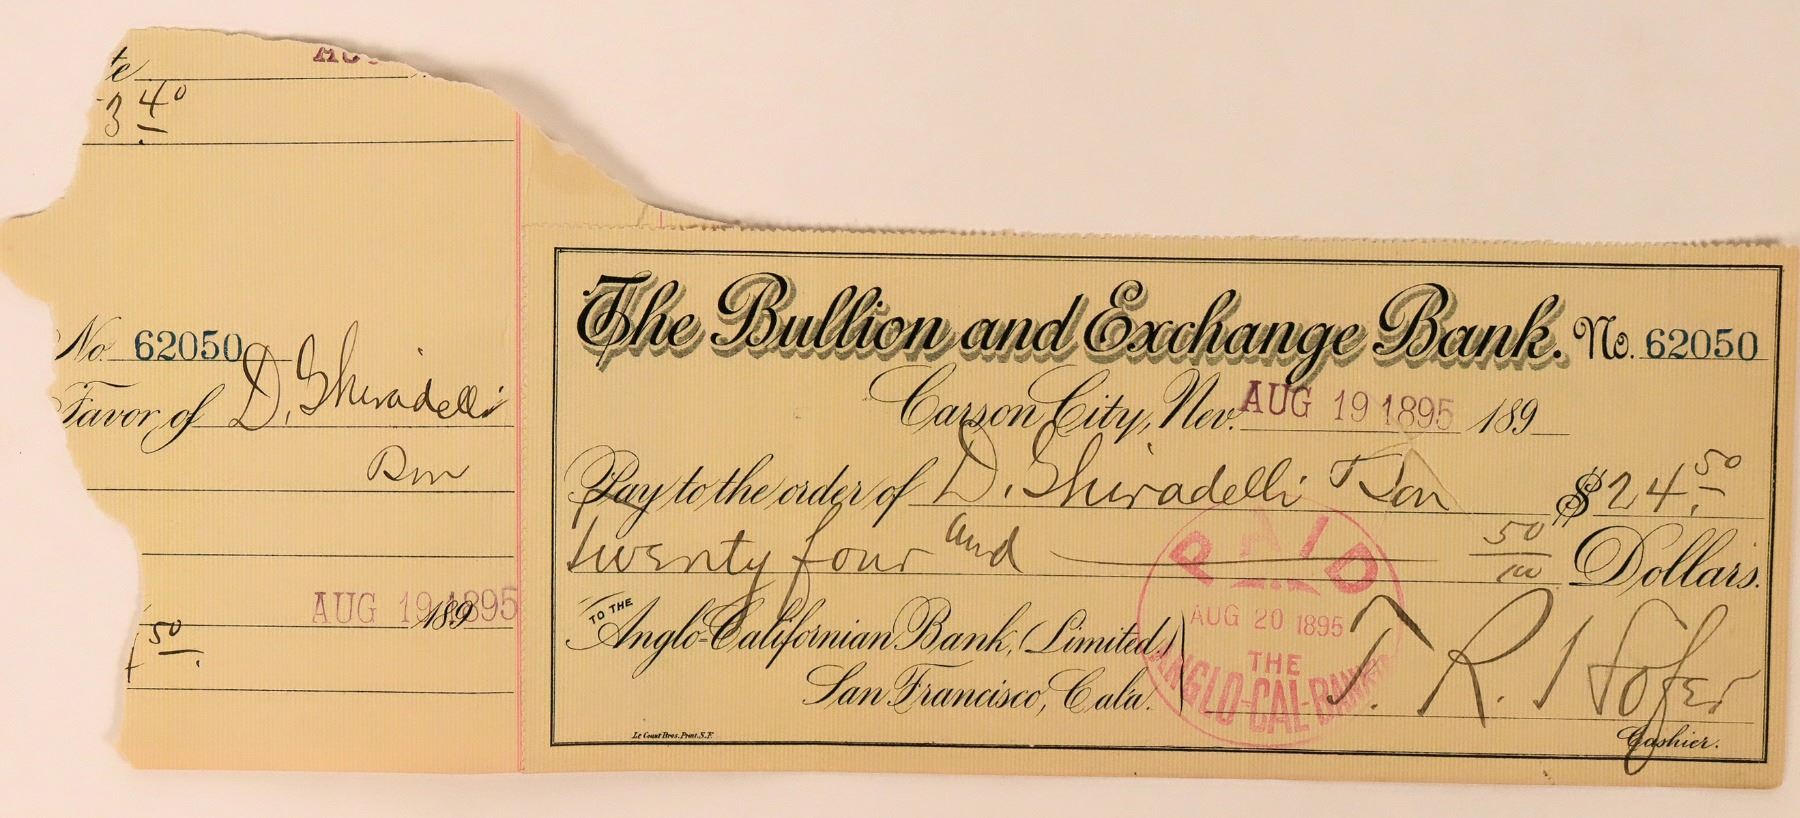 te
3 40
No. 62050
Favor of D. Ghiradelli
Son
AUG 19 1895 189
50
The Bullion and Exchange Bank. No. 62050
Carson City, Nev. AUG 19 1895 189
Pay to the order of D. Ghiradelli & Son $ 24.50
twenty four and 50/100 Dollars.
TO THE
Anglo-Californian Bank, (Limited.)
San Francisco, Cala.
PAID
AUG 20 1895
THE
ANGLO-CAL-BANK
T. R. Hofer
Cashier.
Le Count Bros. Print. S.F.